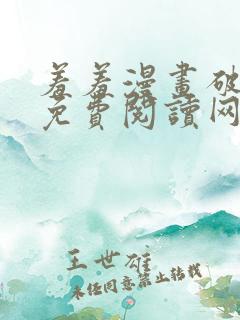 羞羞漫畫破
免費閱讀网
王世雄
未经同意禁止转载